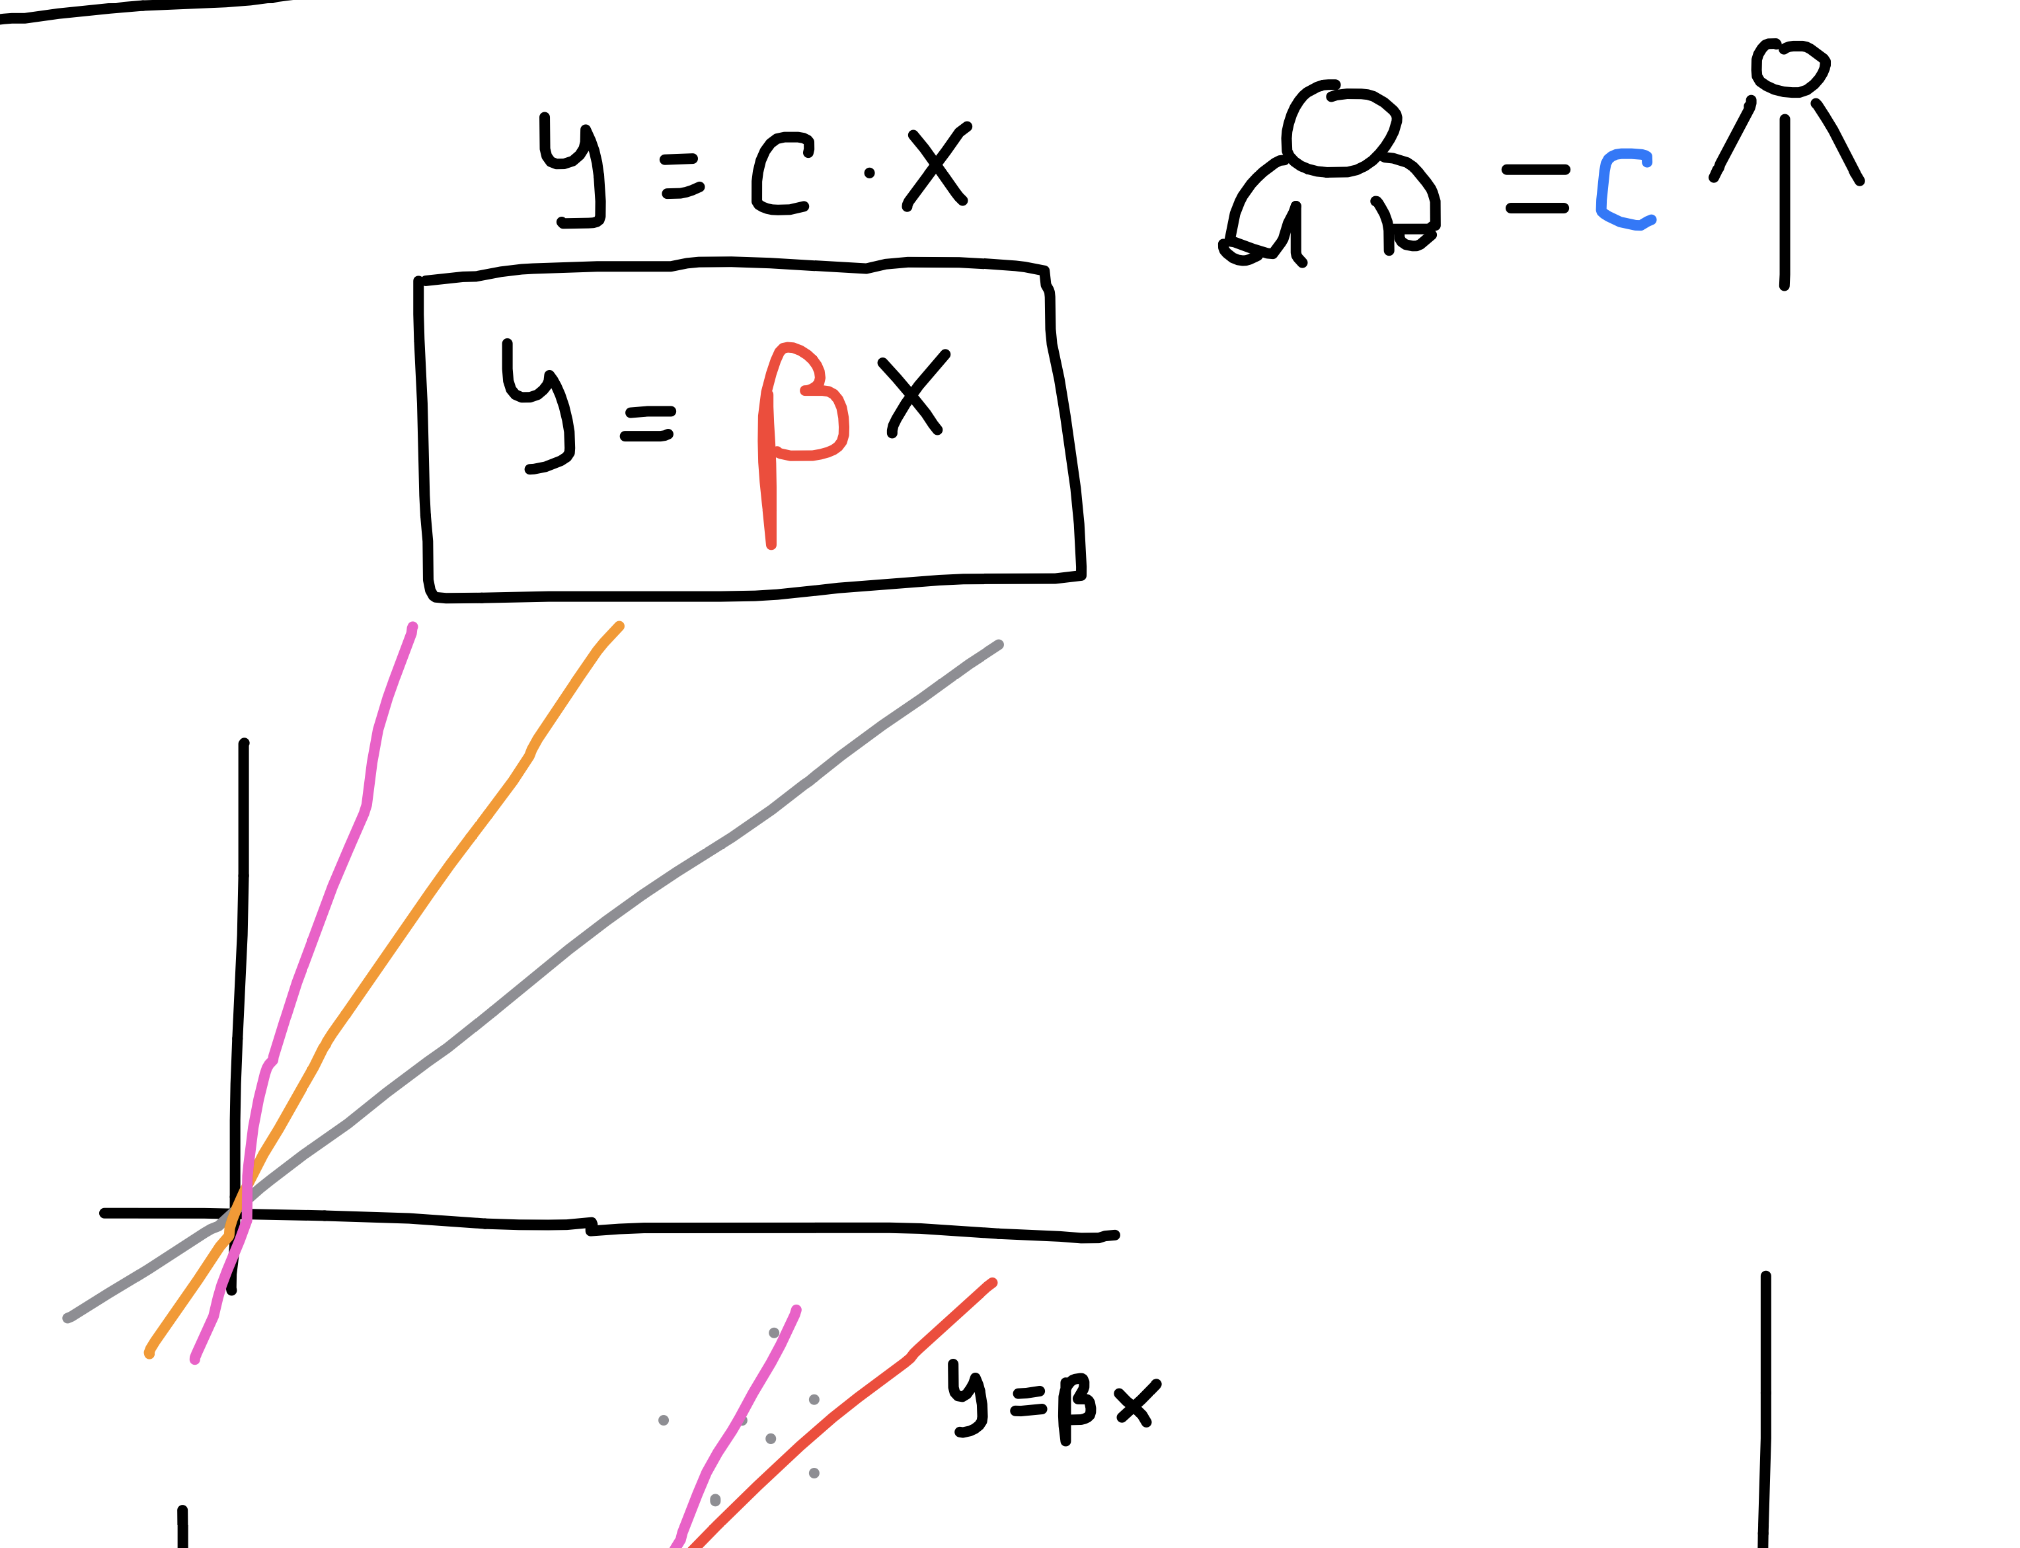 y = c · x
= c
y = β x
y = β x